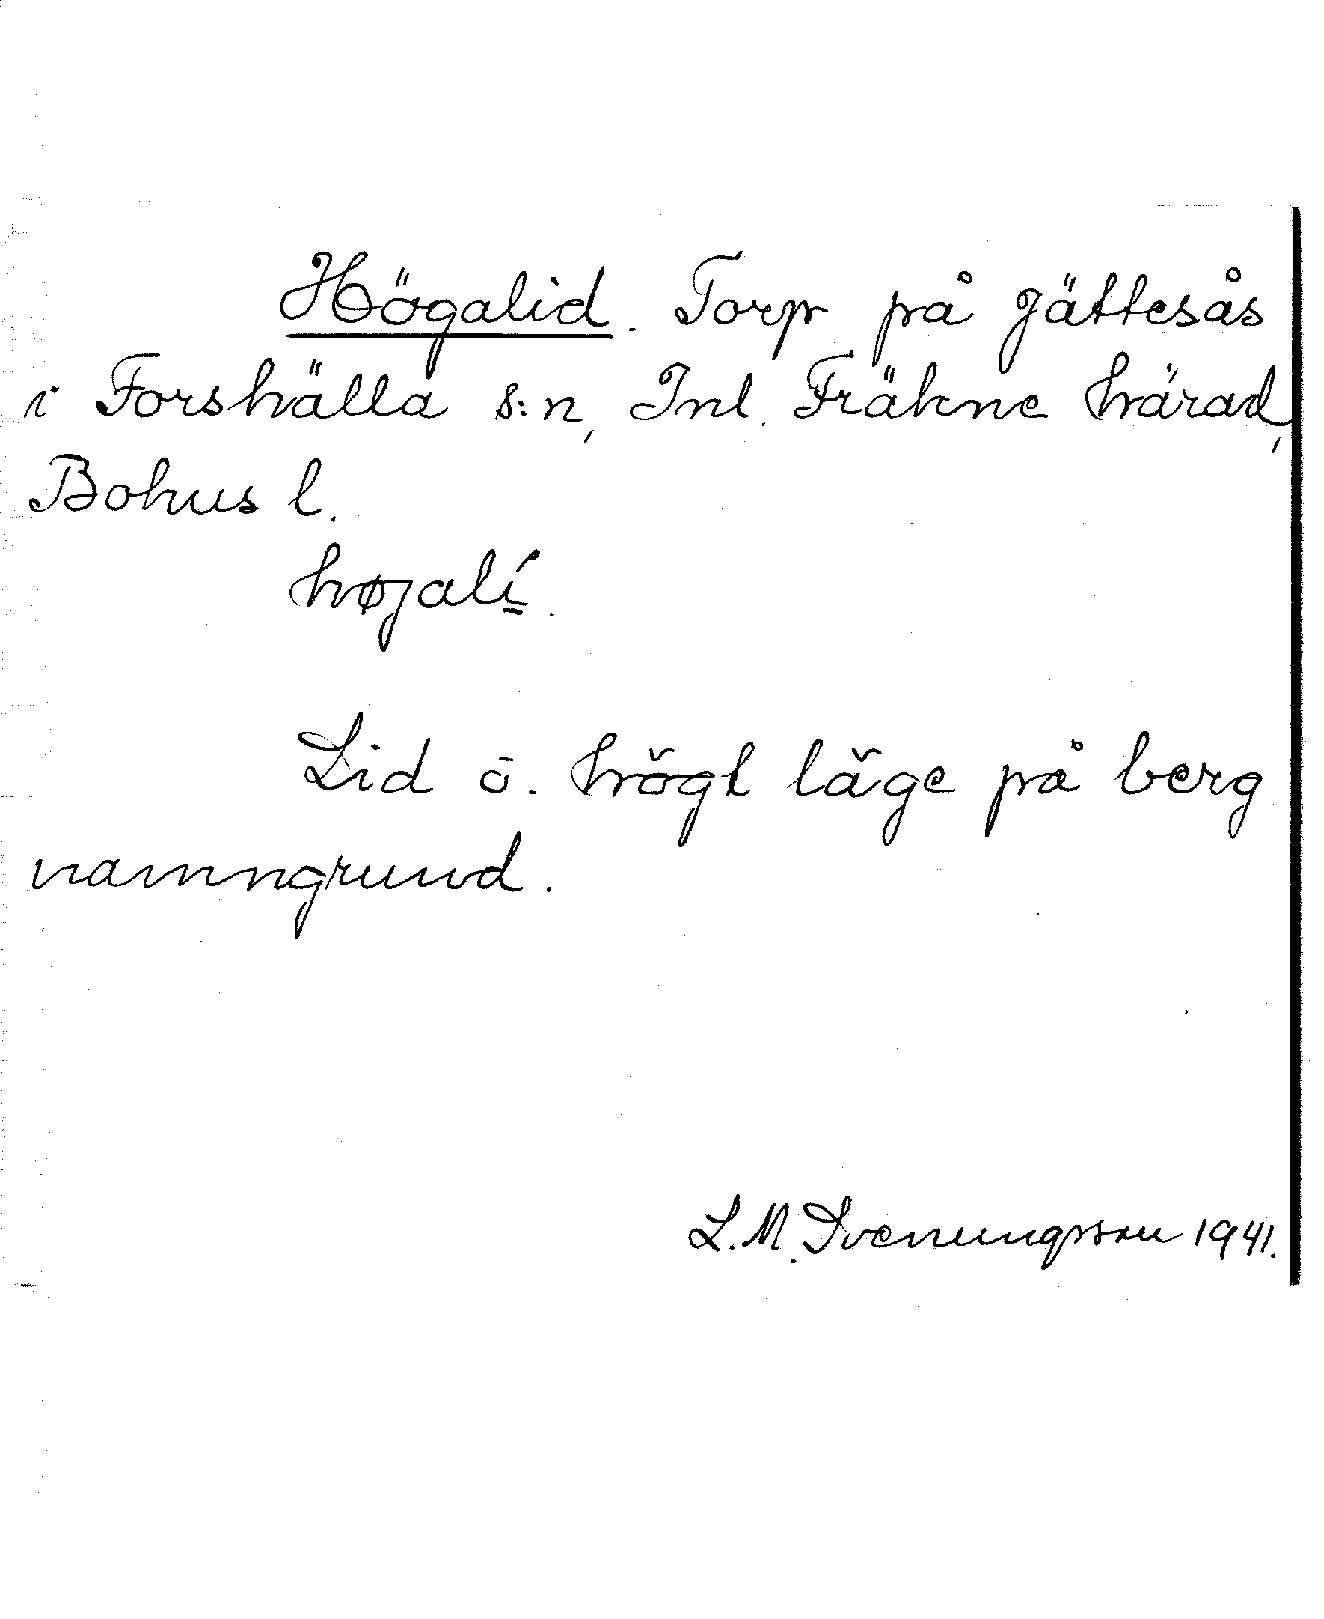 Högalid. Torp på Jättesås
i Forshälla s:n, Inl. Fräkne härad,
Bohus l.
højalí.
Lid o. högt läge på berg
namngrund.
L.M. Svenungsson 1941.